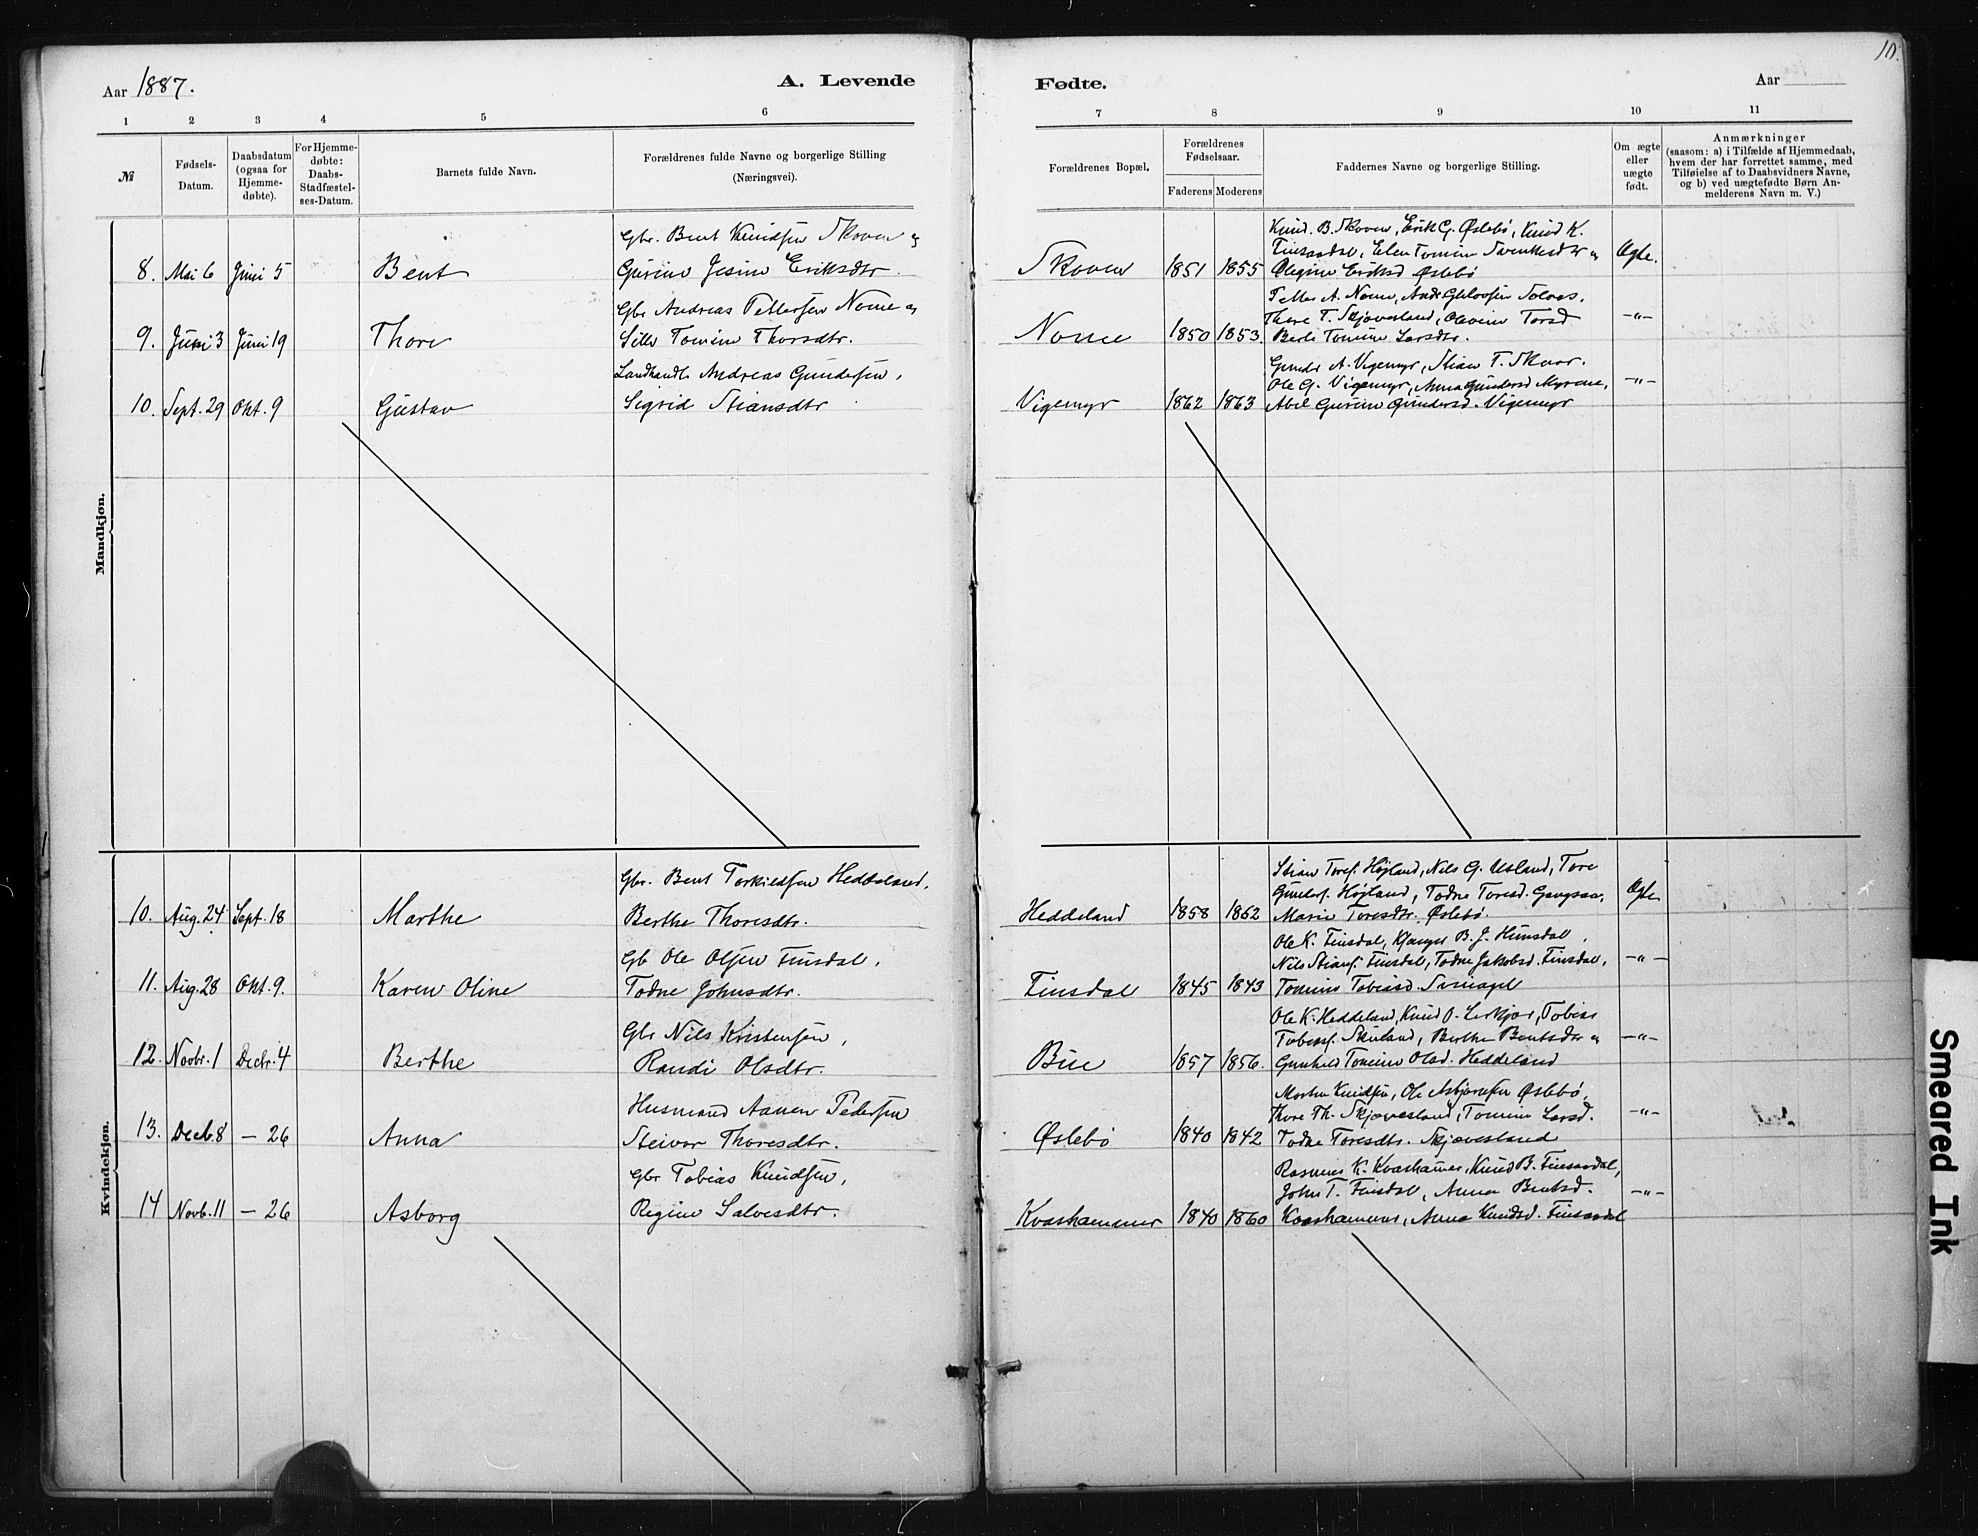 Aar 1887.
A. Levende
Fødte.
Aar
10.
1 2 3 4 5 6
7 8 9 10 11
№
Fødsels-
Datum.
Daabsdatum
(ogsaa for
Hjemme-
døbte).
For Hjemme-
døbte:
Daabs-
Stadfæstel-
ses-Datum.
Barnets fulde Navn.
Forældrenes fulde Navne og borgerlige Stilling
(Næringsvei).
Forældrenes Bopæl.
Forældrenes
Fødselsaar.
Faderens Moderens
Faddernes Navne og borgerlige Stilling.
Om ægte
eller
uægte
født.
Anmærkninger
(saasom: a) i Tilfælde af Hjemmedaab,
hvem der har forrettet samme, med
Tilføielse af to Daabsvidners Navne,
og b) ved uægtefødte Børn An-
melderens Navn m. V.)
Mandkjøn.
8. Mai 6 Juni 5 Bent
Gbr. Bent Knudsen Skoven og
Gurine Jesine Eriksdtr.
Skoven 1851 1855
Knud B. Skoven, Erik G. Øslebø, Knud K.
Finsaadal, Elen Tomine Svenkesdtr og
Olegine Eriksd Øslebø
Ægte.
9. Juni 3 Juni 19 Thore
Gbr Andreas Pettersen Nome og
Sille Tomine Thorsdtr.
Nome 1850 1853.
Petter A. Nome, Andr Solaas.
Thore T. Skjævesland, Olevine Torsd
Berte Tomine Larsdtr.
—"—
10. Sept. 29 Okt. 9 Gustav
Landhandl. Andreas Gundersen,
Sigrid Stiansdtr
Vigemyr 1862 1863
Gunder A. Vigemyr, Stian T. Skaar.
Ole G. Vigemyr, Anna Gundersd Myrene,
Abel Gurine Gundersd. Vigemyr
—"—
Kvindekjøn.
10. Aug. 24 Sept. 18 Marthe
Gbr. Bent Torkildsen Heddeland,
Berthe Thoresdtr.
Heddeland 1858 1862
Stian Toresf. Højland, Nils G. Usland, Tore
Gundersf. Højland, Todne Toresd. Gangsaa,
Marie Toresdtr. Øslebø.
Ægte
11. Aug. 28 Okt. 9. Karen Oline
Gb Ole Olsen Finsdal,
Todne Johnsdtr.
Finsdal 1845 1843
Ole K. Finsdal, B. J. Hunsdal,
Nils Stiansf. Finsdal, Todne Jakobsd. Finsdal,
Tomine Tobiasd.
—"—
12. Novbr. 1 Decbr. 4 Berthe
Gbr Nils Kristensen,
Randi Olsdtr.
Bue 1857 1856.
Ole K. Heddeland, Knud O. Tobias
Tobiasf. Berthe Bentsdtr og
Gunhild Tomine Olsd. Heddeland
—"—
13. Decb. 8 — 26 Anna
Husmand Aanen Pedersen
Steivor Thoresdtr.
Øslebø 1840 1842
Morten Knudsen, Ole Asbjørnsen Øslebø,
Thore Th. Skjævesland, Tomine Larsd.
Todne Toresdtr. Skjævesland
—"—
14 Novb. 11 — 26 Asborg
Gbr Tobias Knudsen,
Regine Salvesdtr.
Kvashammer 1840 1860
Rasmus K. Kvashamer, Knud B. Finsaadal,
John T. Finsdal, Anna Bentsd.
Kvashammer, Anna Knudsd. Finsaadal
—"—
Smeared Ink